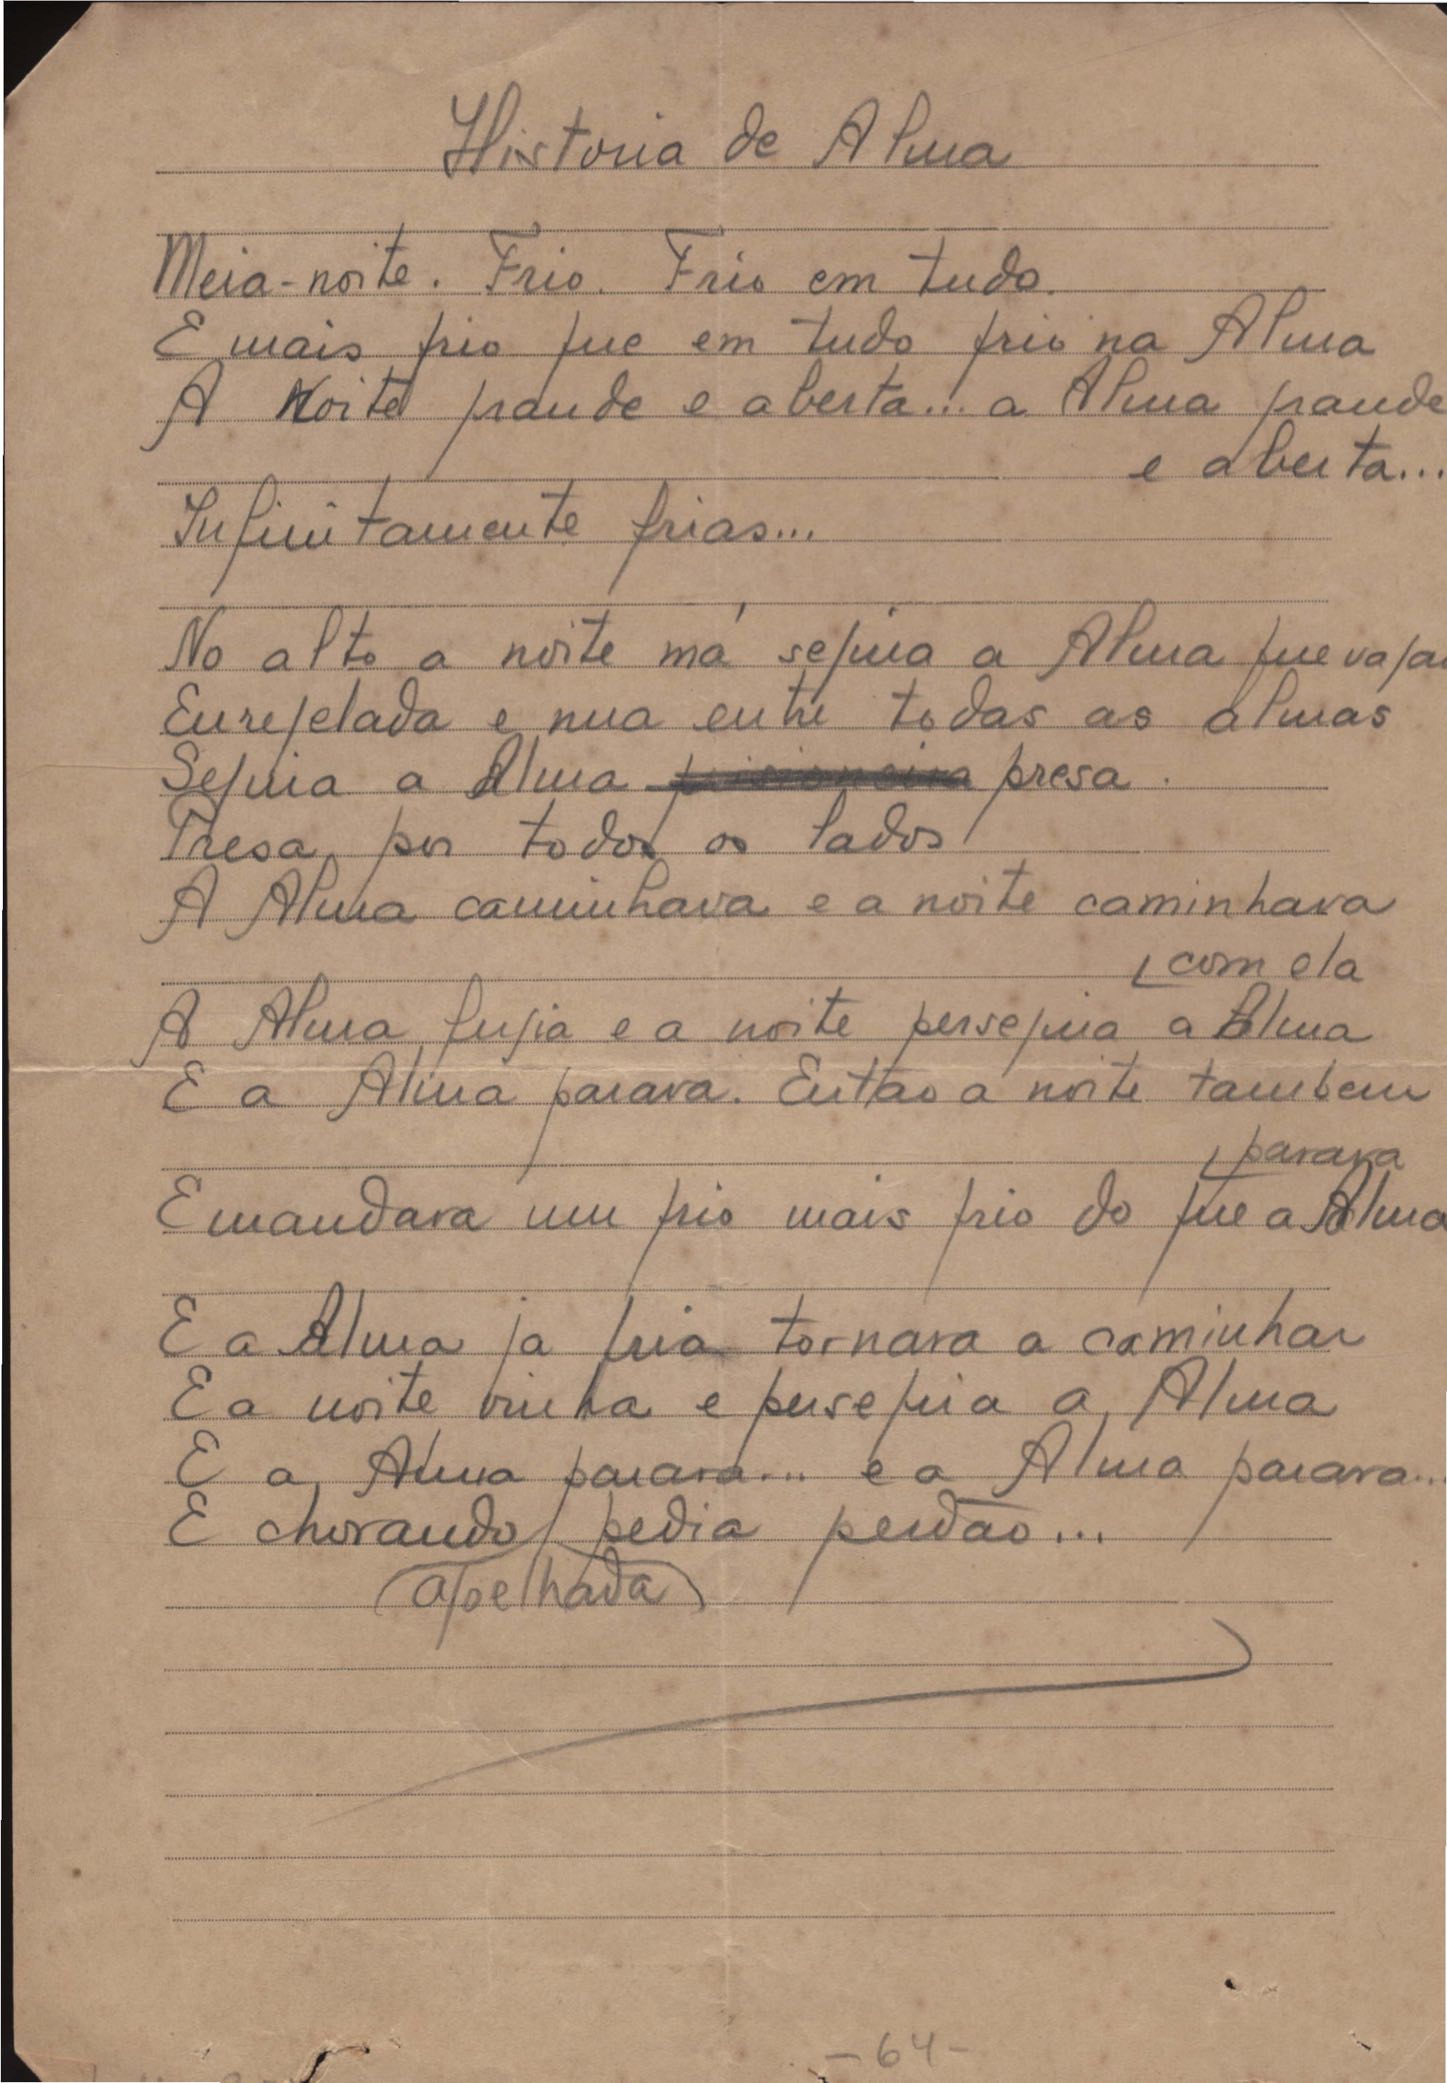 Historia de Alma
Meia-noite. Frio. Frio em tudo.
E mais frio que em tudo frio na Alma
A Noite grande e aberta... a Alma grande
e aberta...
Infinitamente frias...
No alto a noite má seguia a Alma que vagau
Enregelada e nua entre todas as almas
Seguia a Alma prisioneira presa.
Presa por todos os lados
A Alma caminhava e a noite caminhava
com ela
A Alma fugia e a noite perseguia a Alma
E a Alma parava. Entao a noite tambem
parava
E mandava um frio mais frio do que a Alma
E a Alma ja fria tornava a caminhar
E a noite vinha e perseguia a Alma
E a Alma parava... e a Alma parava...
E chorando pedia perdão...
ajoelhada
-64-